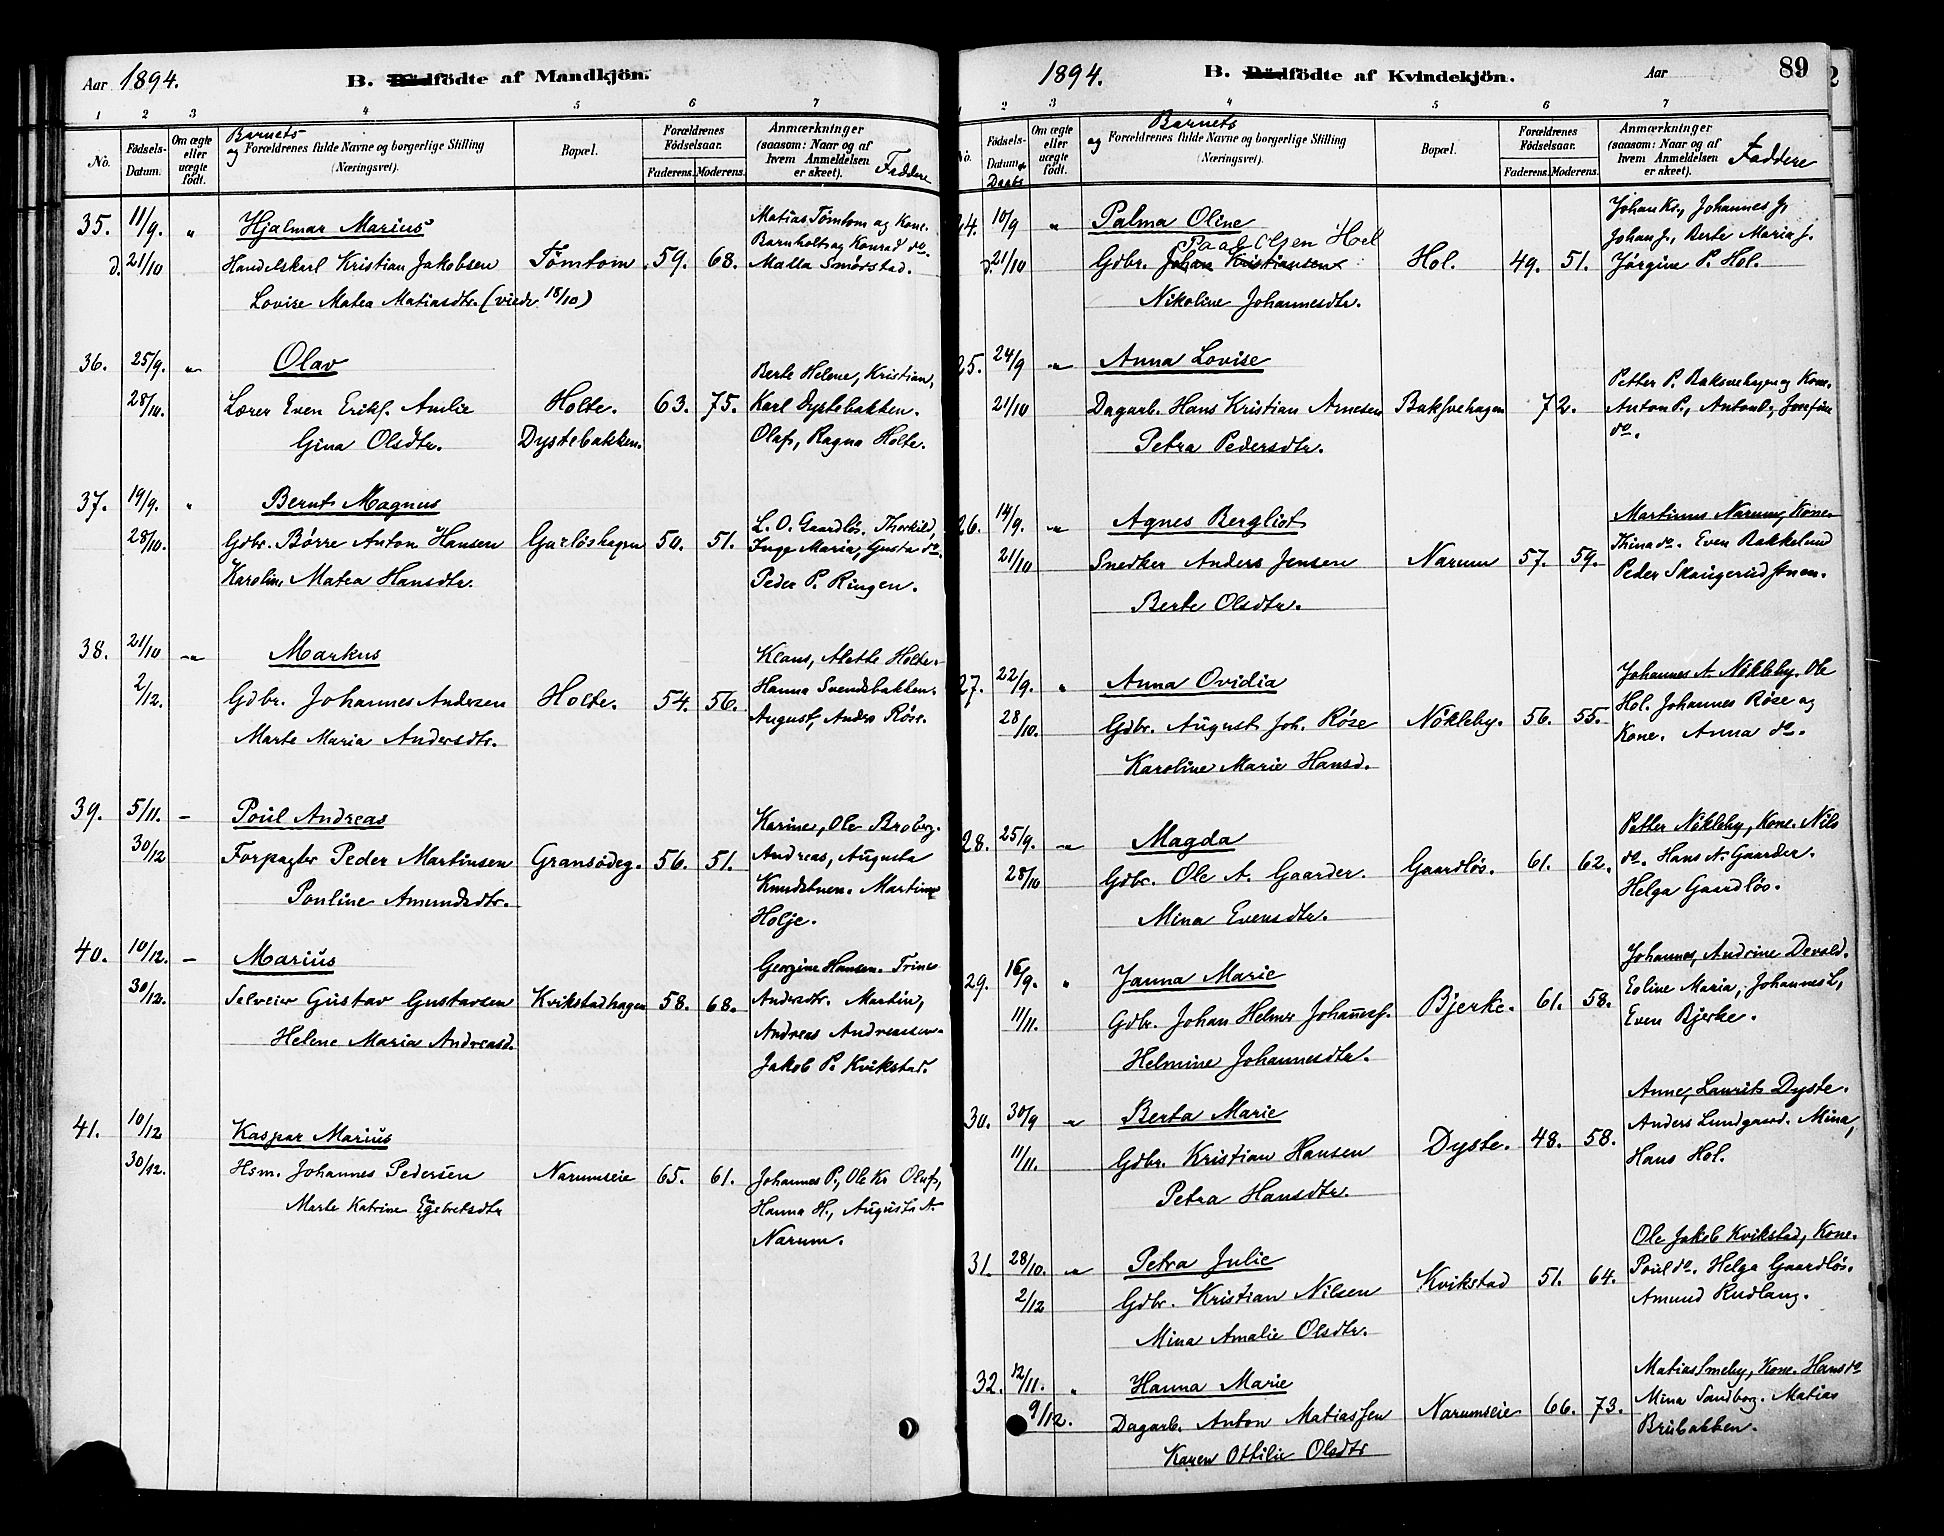 Aar 1894.
B. Dödfödte af Mandkjön.
1 2 3 4 5 6 7
No.
Födsels-
Datum.
Om ægte
eller
uægte
födt.
Barnets
og Forældrenes fulde Navne og borgerlige Stilling
(Næringsvei).
Bopæl.
Forældrenes
Födselsaar.
Faderens. Moderens.
Anmærkninger
(saasom: Naar og af
hvem Anmeldelsen
er skeet).
Faddere
35. 11/9. " Hjalmar Marius
d. 21/10 Handelskarl Kristian Jakobsen Tømtom 59. 68.
Lovise Matea Matiasdtr. (viede 18/10)
Matias Tømtom og Kone.
Barnholt og Konrad do.
Malla Smørstad.
36. 25/9. " Olav
28/10. Lærer Even Erikf. Amlie Holte. 63. 75.
Gina Olsdtr. Dystebakken.
Berte Helene, Kristian,
Karl Dystebakken.
Olaf, Ragna Holte.
37. 19/9. " Bernt Magnus
28/10. Gdbr. Børre Anton Hansen Garløshagen 50. 51.
Karoline Matea Hansdtr.
L. O. Gaardløs. Thorkild,
Inge Maria, Gusta do.
Peder P. Ringen.
38. 21/10 " Markus
2/12. Gdbr. Johannes Andersen Holte. 54. 56.
Marte Maria Andersdtr.
Klaus, Alette Holte.
Hanna Svendsbakken.
August, Anders Røse.
39. 5/11. - Poul Andreas
30/12 Forpagter Peder Martinsen Gransødeg. 56. 51.
Pouline Amundsdtr.
Karine, Ole Broberg.
Andreas, Augusta
Knudstuen. Martinus
Holje.
40. 10/12. - Marius
30/12. Selveier Gustav Gustavsen Kvikstadhagen 58. 68.
Helene Maria Andreasd.
Georgine Hansen. Trine
Andersdtr. Martin,
Andreas Andreassen.
Jakob P. Kvikstad.
41. 10/12 Kaspar Marius
30/12. Hsm. Johannes Pedersen Narumseie 65. 61.
Marte Katrine Egebretsdtr
Johannes P., Ole Kr. Oluf,
Hanna H., Augusta A.
Narum.
1894.
B. Dödfödte af Kvindekjön.
Aar
89
1 2 3 4 5 6 7
No.
Födsels-
Datum &
Daabs
Om ægte
eller
uægte
födt.
Barnets
og Forældrenes fulde Navne og borgerlige Stilling
(Næringsvei).
Bopæl.
Forældrenes
Födselsaar.
Faderens. Moderens.
Anmærkninger
(saasom: Naar og af
hvem Anmeldelsen
er skeet).
Faddere
24. 10/9 " Palma Oline
Paal Olsen Hoel
d. 21/10 Gdbr. Johan Kristiansen Hol. 49. 51.
Nikoline Johannesdtr.
Johan Kr., Johannes J,
Johan J., Berte Maria J.
Jørgine P. Hol.
25. 24/9 " Anna Lovise
21/10 Dagarb. Hans Kristian Arnesen Baksvehagen 72.
Petra Pedersdtr.
Petter P. Baksvehagen og Kone.
Anton P., Anton P., Josefine
do.
26. 14/9. " Agnes Bergliot
21/10 Snedker Anders Jensen Narum 57. 59.
Berte Olsdtr.
Martinus Narum, Kone
Thina do. Even Bakkelund
Peder Skaugerudstuen.
27. 22/9. " Anna Ovidia
28/10. Gdbr. August Joh. Røse Nökleby. 56. 55.
Karoline Marie Hansd.
Johannes A. Nökleby. Ole
Hol. Johannes Røse og
Kone. Anna do.
28. 25/9. " Magda
28/10 Gdbr. Ole A. Gaarder. Gaardløs. 61. 62.
Mina Evensdtr.
Petter Nökleby, Kone. Nils
do. Hans A. Gaarder.
Helga Gaardløs.
29. 16/9. " Janna Marie
11/11. Gdbr. Johan Helmer Johannesf. Bjerke. 61. 58.
Helmine Johannesdtr.
Johannes, Andrine Devold.
Eoline Maria, Johannes L,
Even Bjerke.
30. 30/9 " Berta Marie
11/11. Gdbr. Kristian Hansen Dyste. 48. 58.
Petra Hansdtr.
Anne, Laurits Dyste.
Anders Lundgaard. Mina,
Hans Hol.
31. 28/10. " Petra Julie
2/12 Gdbr. Kristian Nilsen Kvikstad 51. 64.
Mina Amalie Olsdtr.
Ole Jakob Kvikstad, Kone.
Poul do. Helga Gaardløs.
Amund Rudlang.
32. 12/11. " Hanna Marie
9/12. Dagarb. Anton Matiassen Narumseie 66. 73.
Karen Ottilie Olsdtr
Matias Smeby, Kone. Hans do
Mina Sandborg. Matias
Brubakken.